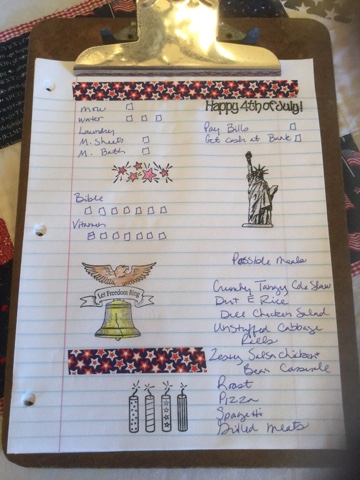 Happy 4th of July!
mow
water
Laundry
M. Sheets
M. Bath
Pay Bills
Get cash at Bank
Bible
Vitamins
Let Freedom Ring
Possible meals
Crunchy Tangy Cole Slaw
Dirt E Rice
Dill Chicken Salad
Unstuffed Cabbage
Rolls
Zesty Salsa Chicken
Bean Casserole
Roast
Pizza
Spaghetti
Grilled meats